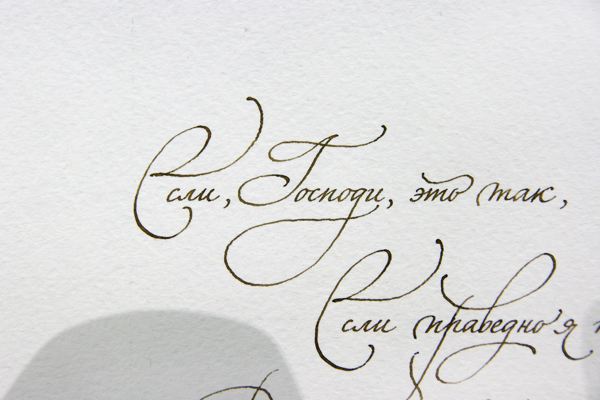 Если, Господи, это так,
Если праведно я